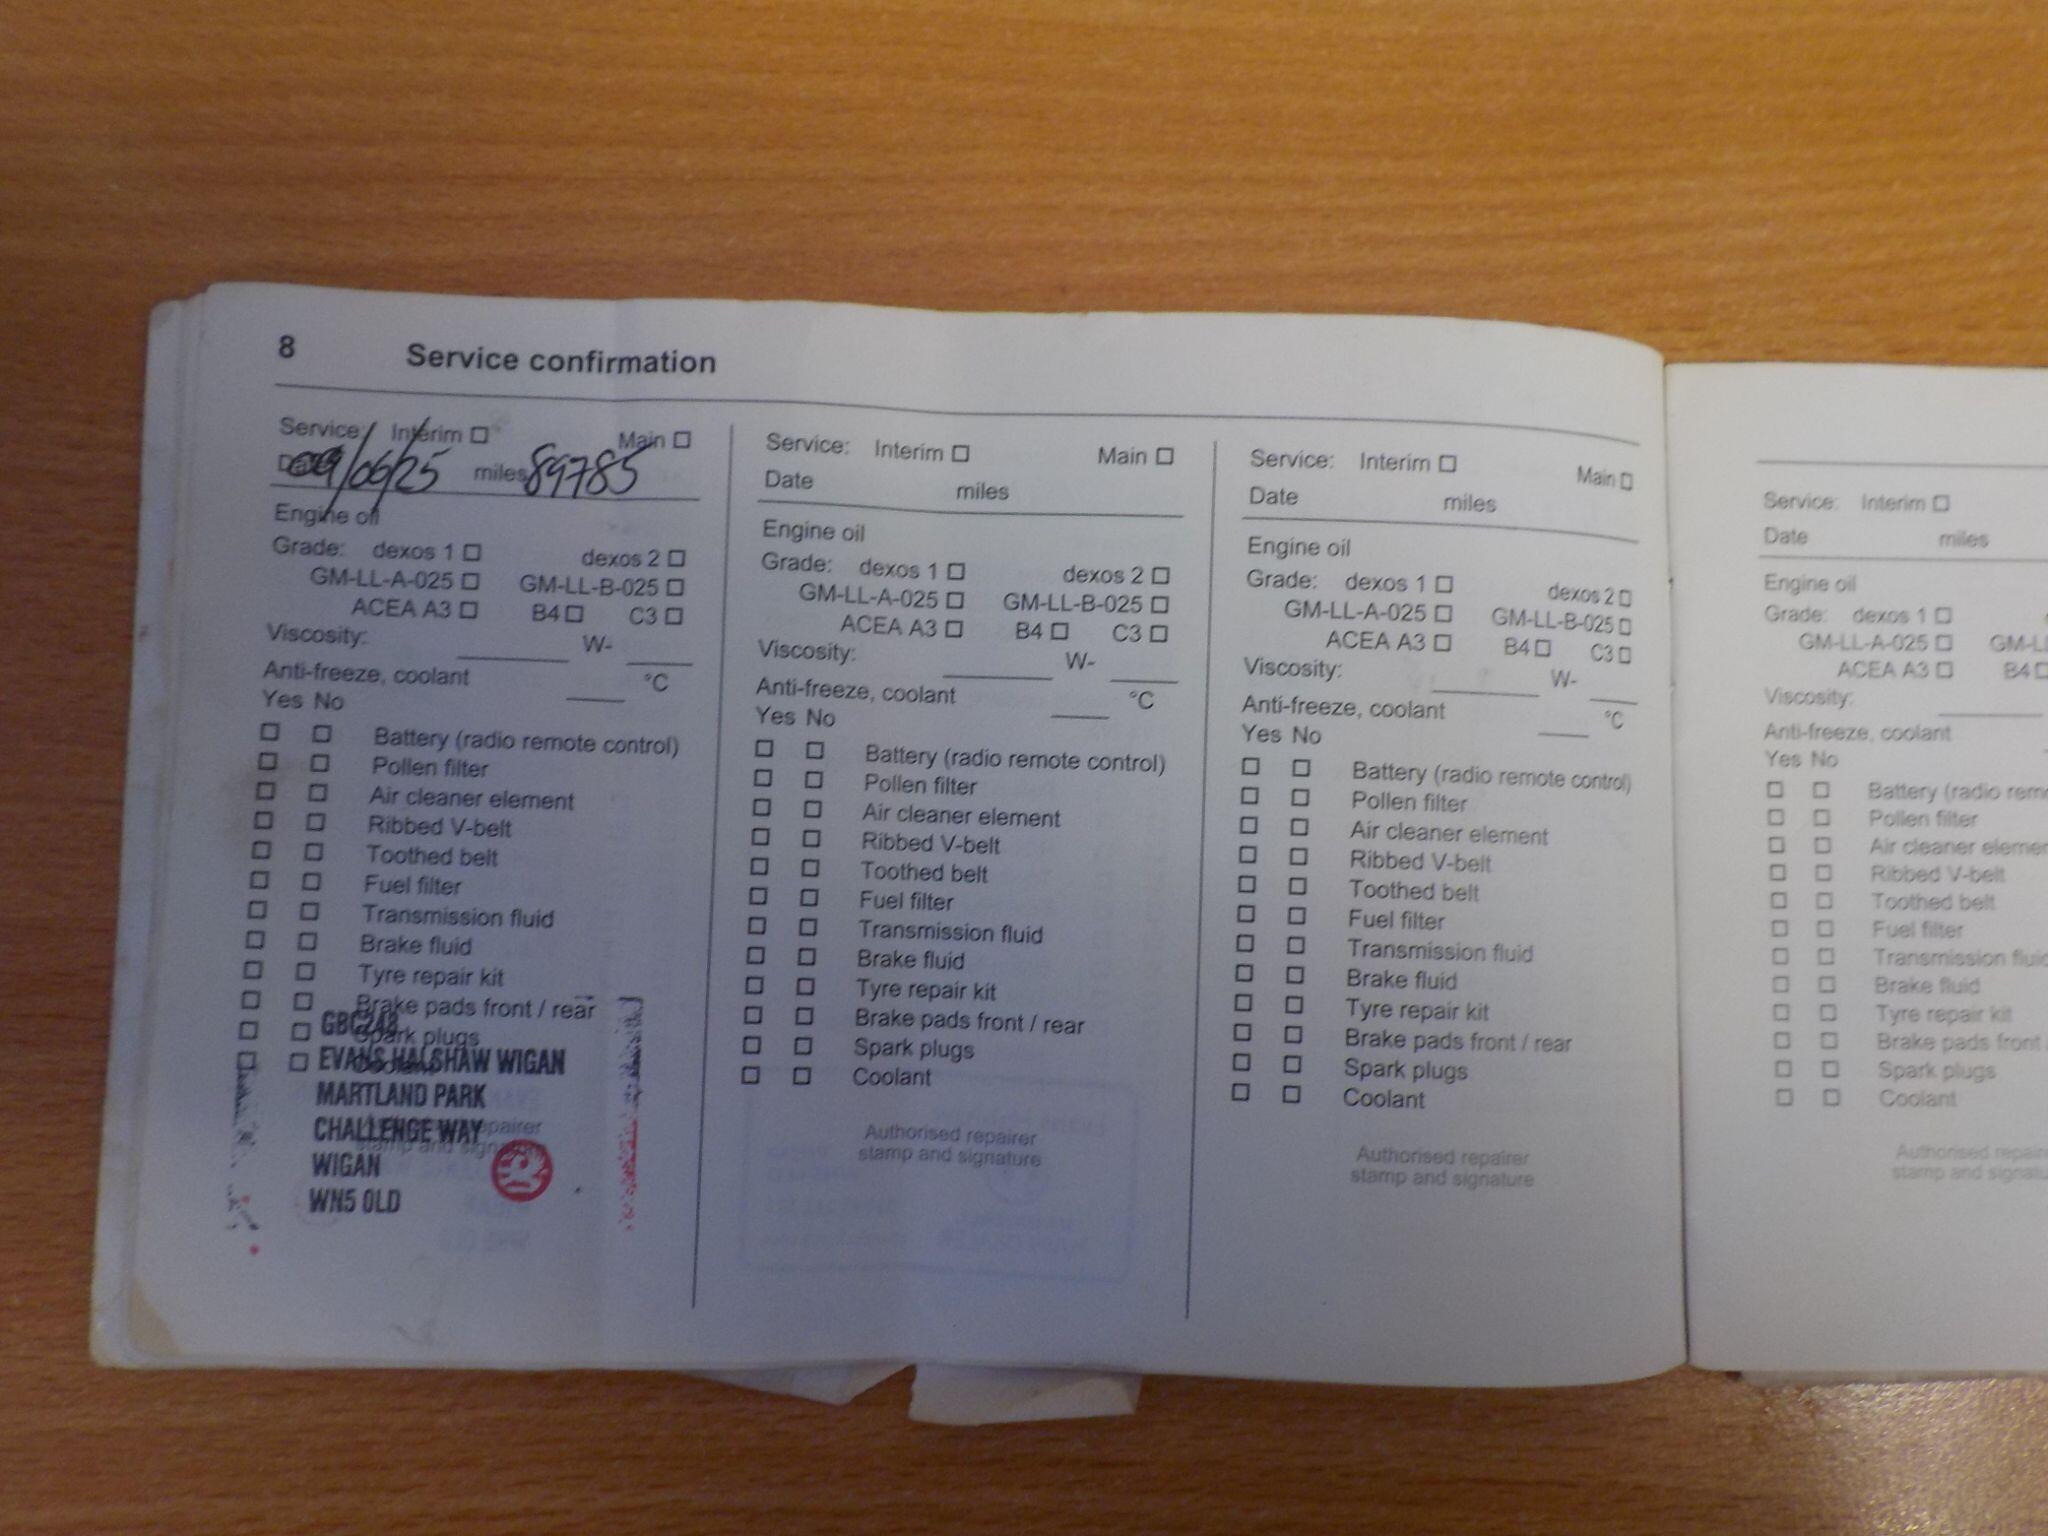 8 Service confirmation
Service: Interim Main
Date 09/06/25 miles 89785
Engine oil
Grade: dexos 1 dexos 2
GM-LL-A-025 GM-LL-B-025
ACEA A3 B4 C3
Viscosity: W-
Anti-freeze, coolant °C
Yes No
Battery (radio remote control)
Pollen filter
Air cleaner element
Ribbed V-belt
Toothed belt
Fuel filter
Transmission fluid
Brake fluid
Tyre repair kit
Brake pads front / rear
Spark plugs
EVANS HALSHAW WIGAN
MARTLAND PARK
CHALLENGE WAY
stamp and signature
WIGAN
WN5 0LD
Service: Interim Main
Date miles
Engine oil
Grade: dexos 1 dexos 2
GM-LL-A-025 GM-LL-B-025
ACEA A3 B4 C3
Viscosity: W-
Anti-freeze, coolant °C
Yes No
Battery (radio remote control)
Pollen filter
Air cleaner element
Ribbed V-belt
Toothed belt
Fuel filter
Transmission fluid
Brake fluid
Tyre repair kit
Brake pads front / rear
Spark plugs
Coolant
Authorised repairer
stamp and signature
Service: Interim Main
Date miles
Engine oil
Grade: dexos 1 dexos 2
GM-LL-A-025 GM-LL-B-025
ACEA A3 B4 C3
Viscosity: W-
Anti-freeze, coolant °C
Yes No
Battery (radio remote control)
Pollen filter
Air cleaner element
Ribbed V-belt
Toothed belt
Fuel filter
Transmission fluid
Brake fluid
Tyre repair kit
Brake pads front / rear
Spark plugs
Coolant
Authorised repairer
stamp and signature
Service: Interim
Date miles
Engine oil
Grade: dexos 1
GM-LL-A-025 GM-LL
ACEA A3 B4
Viscosity:
Anti-freeze, coolant
Yes No
Battery (radio rem
Pollen filter
Air cleaner elemen
Ribbed V-belt
Toothed belt
Fuel filter
Transmission fluid
Brake fluid
Tyre repair kit
Brake pads front
Spark plugs
Coolant
Authorised repair
stamp and signatu